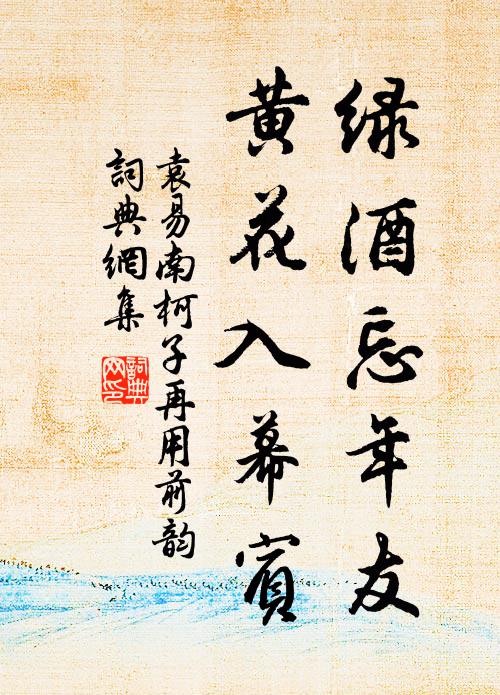 绿酒忘年友
黄花入幕賓
袁易南柯子再用前韵
詞典網集
詞典
网印